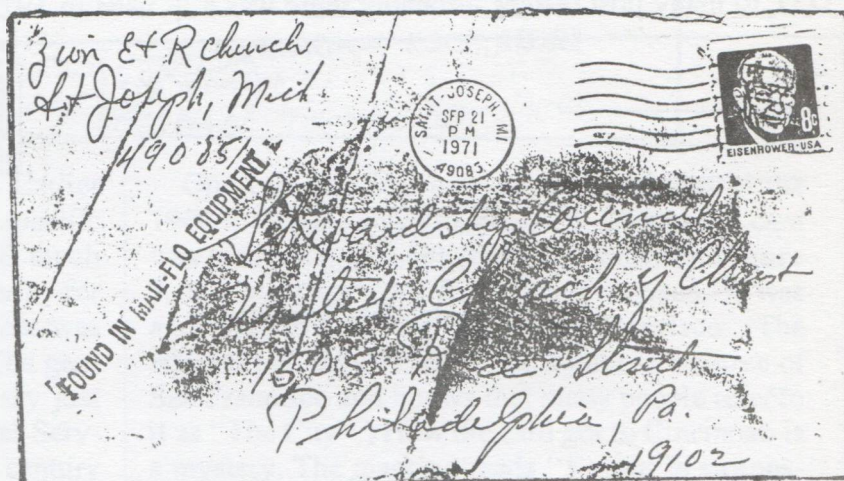 Zion E+R Church
St Joseph, Mich
490851
SAINT JOSEPH, MI
SEP 21
PM
1971
49085
8c
EISENHOWER·USA
FOUND IN MAIL-FLO EQUIPMENT
Stewardship Council
United Church of Christ
1505 Race Street
Philadelphia, Pa.
19102